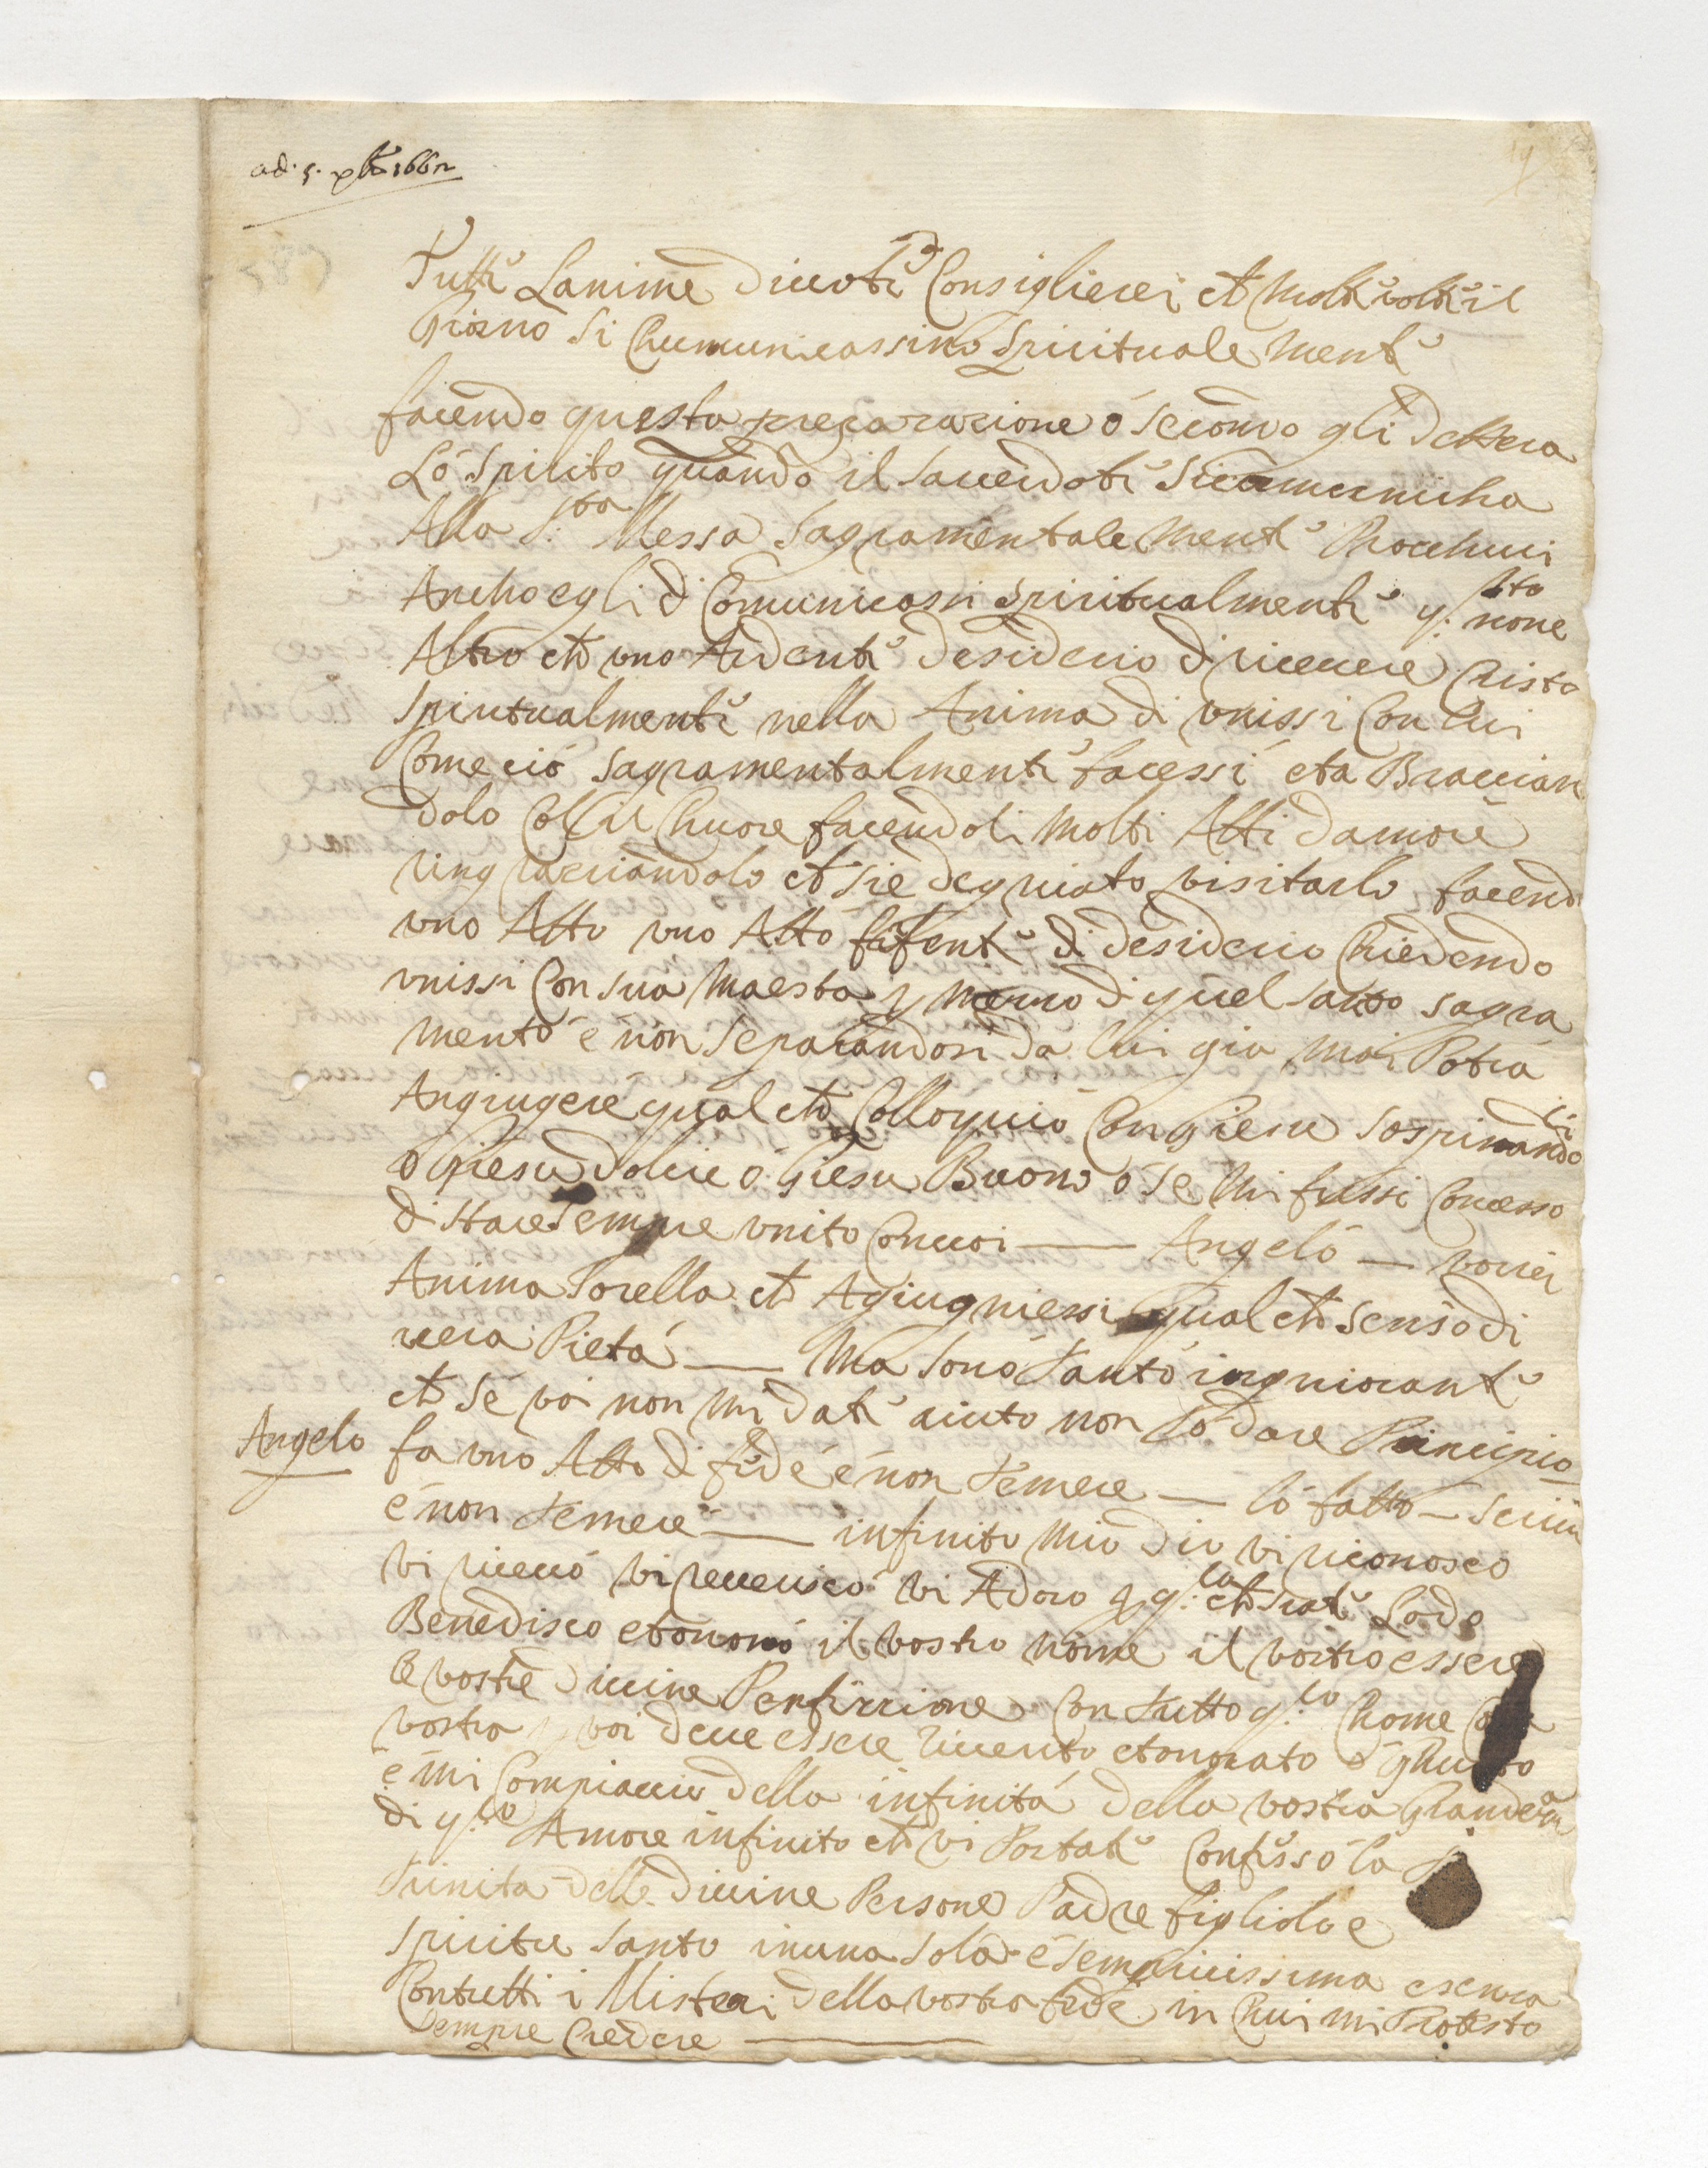 ad: 5. xbre 1662
19
Tutte Lanime Diuote Consiglierei che molte volte il
Giorno Si Chumunicassino Spiritualemente
facendo questa preparazione ó Secondo gli Dettera
Ló Spirito quando il Sacerdote Sicomunicha
Alla S.ta Messa Sagramentalemente Procchuri
Anchoegli di Comunicarsi Spiritualmente q.sto none
Altro che uno Ardente desiderio di riceuere Cristo
Spiritualmente nella Anima di unissi Con lui
Come ció Sagramentalmente facessi eta Braccian
dolo Col Chuore facendoli Molti Atti damore
ringraziandolo che sie degniato visitarlo facendo
uno Atto uno Atto di desiderio Chiedendo
unissi Con sua Maesta di quel santo sagra
mento é non Separandosi da lui gia mai Potra
Angiugere qualche Colloquio Con Giesu Sospirando
ó Giesu dolcie ó Giesu Buono ó Se Mi fussi Concesso
di stare Sempre unito Conuoi — Angelo — vorrei
Anima Sorella che Agiugniessi qualche Senso di
uera Pietá — Ma Sono tanto ingniorante
che Sé voi non mi date aiuto non Só dare Principio
Angelo fa uno Atto di fede é non temere — Ló fatto — Seriui
é non temere — infinito Mio dio vi riconosco
vi vi reuerisco vi Adoro p q.lo che siate Lodo
Benedisco etonoro il vostro nome il vostro essere
le vostre Diuine Perfizzione Con tutto q.lo Chome
vostra p voi deue essere riuerito etonorato
é mi Compiaccio della infinitá della vostra Grandeza
di q.lo Amore infinito che vi Portate Confesso la
Trinita delle Diuine Persone Padre figliolo e
Spirito Santo inuna Sola é Sempricissima esenza
Contutti i Misteri della vostra fede in Chui mi Protesto
Sempre Credere —